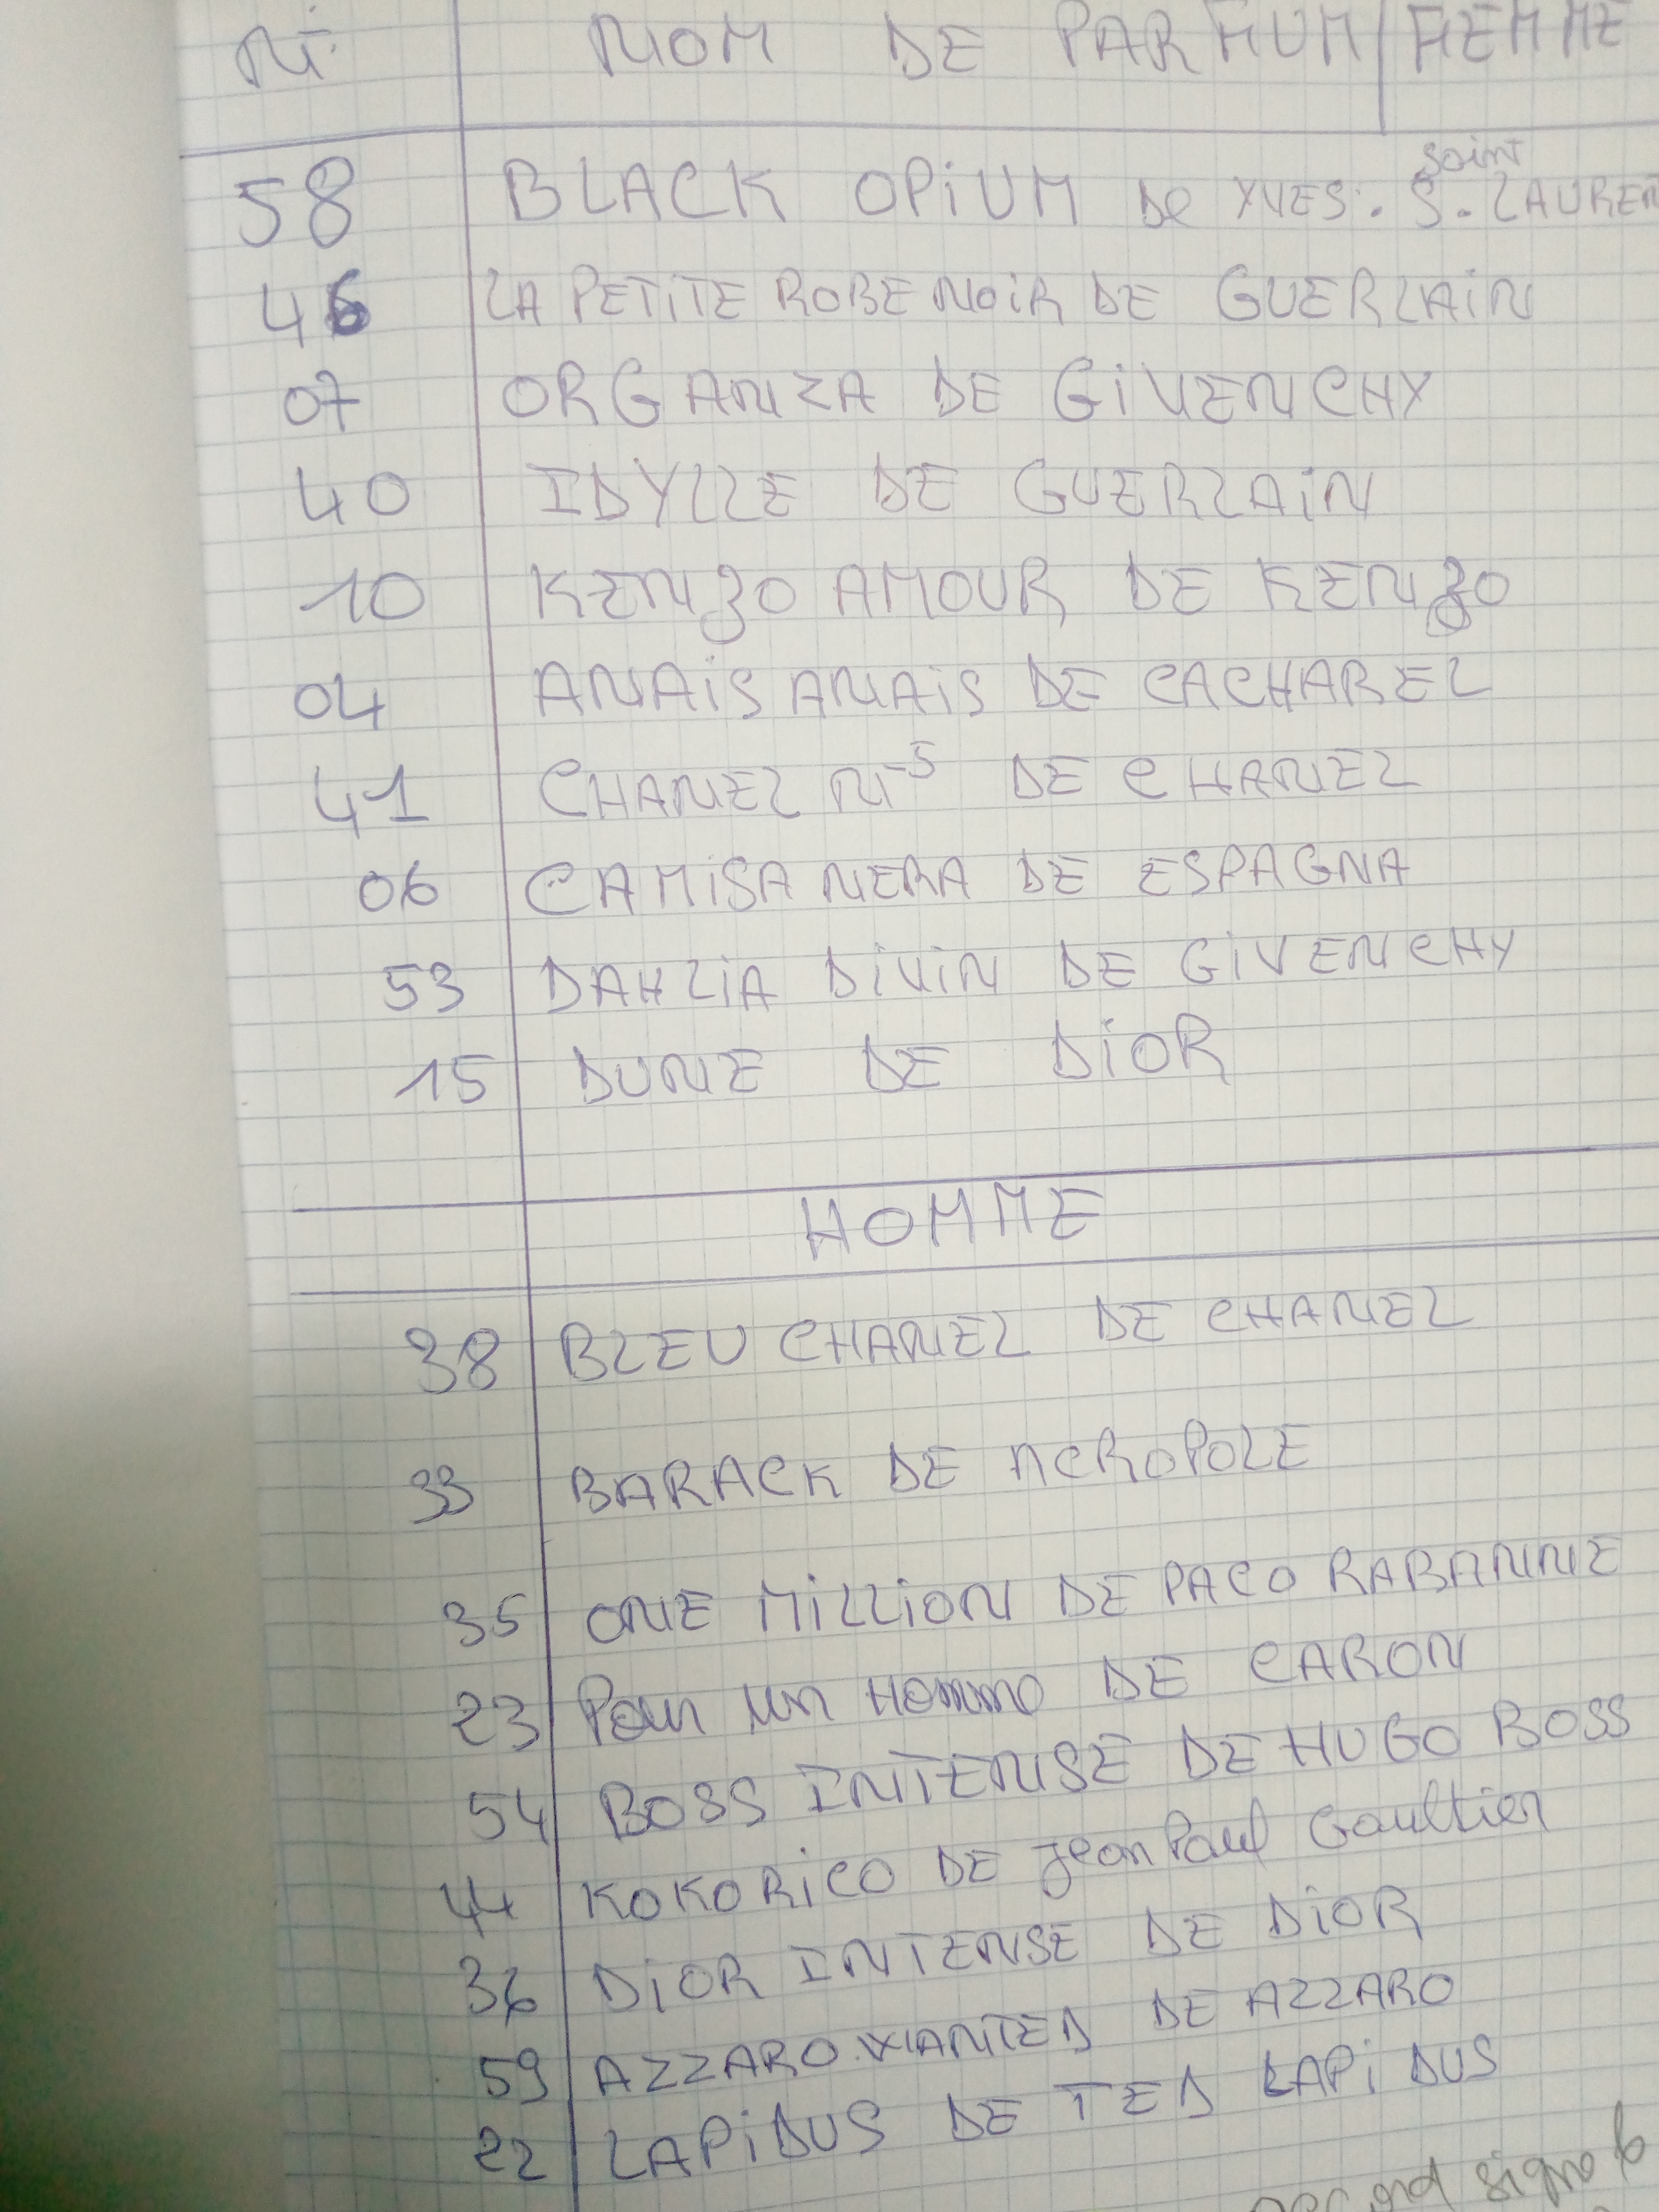 N° NOM DE PARHUM / HEMME
58 BLACK OPiUM De YVES. S. LAUREN
saint
46 LA PETITE ROBE NOiR DE GUERLAiN
07 ORGANZA DE GiVENCHY
40 IDYLLE DE GUERLAiN
10 KENZO AMOUR DE KENZO
04 ANAiS ANAiS DE CACHAREL
41 CHANEL N°5 DE CHANEL
06 CAMiSA NERA DE ESPAGNA
53 DAHLiA DiViN DE GiVENCHY
15 DUNE DE DiOR
HOMME
38 BLEU CHANEL DE CHANEL
33 BARACK DE NCROPOLE
35 ONE MiLLiON DE PACO RABANNE
23 Pour un Homme DE CARON
54 BOSS INTENSE DE HUGO BOSS
44 KOKORiCO DE Jean Paul Gaultier
36 DiOR INTENSE DE DiOR
59 AZZARO WANTED DE AZZARO
22 LAPiDUS DE TED LAPiDUS